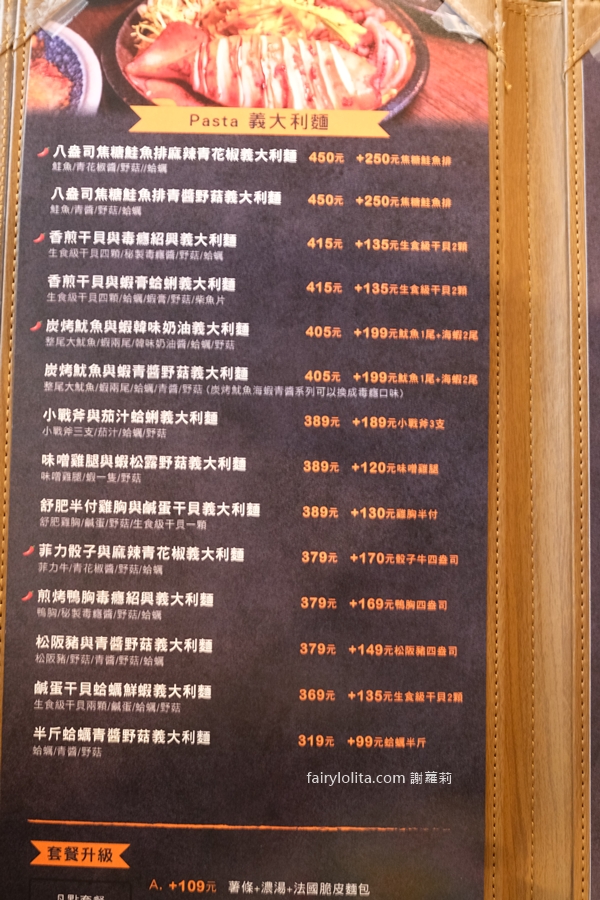 Pasta 義大利麵
八盎司焦糖鮭魚排麻辣青花椒義大利麵 450元 +250元焦糖鮭魚排
鮭魚/青花椒醬/野菇//蛤蠣
八盎司焦糖鮭魚排青醬野菇義大利麵 450元 +250元焦糖鮭魚排
鮭魚/青醬/野菇/蛤蠣
香煎干貝與毒癮紹興義大利麵 415元 +135元生食級干貝2顆
生食級干貝四顆/秘製毒癮醬/野菇/蛤蠣
香煎干貝與蝦膏蛤蜊義大利麵 415元 +135元生食級干貝2顆
生食級干貝四顆/蛤蠣/蝦膏/野菇/柴魚片
炭烤魷魚與蝦韓味奶油義大利麵 405元 +199元魷魚1尾+海蝦2尾
整尾大魷魚/蝦兩尾/韓味奶油醬/蛤蠣/野菇
炭烤魷魚與蝦青醬野菇義大利麵 405元 +199元魷魚1尾+海蝦2尾
整尾大魷魚/蝦兩尾/蛤蠣/青醬/野菇 (炭烤魷魚海蝦青醬系列可以換成毒癮口味)
小戰斧與茄汁蛤蜊義大利麵 389元 +189元小戰斧3支
小戰斧三支/茄汁/蛤蠣/野菇
味噌雞腿與蝦松露野菇義大利麵 389元 +120元味噌雞腿
味噌雞腿/蝦一隻/野菇
舒肥半付雞胸與鹹蛋干貝義大利麵 389元 +130元雞胸半付
舒肥雞胸/鹹蛋/野菇/生食級干貝一顆
菲力骰子與麻辣青花椒義大利麵 379元 +170元骰子牛四盎司
菲力牛/青花椒醬/野菇/蛤蠣
煎烤鴨胸毒癮紹興義大利麵 379元 +169元鴨胸四盎司
鴨胸/秘製毒癮醬/野菇/蛤蠣
松阪豬與青醬野菇義大利麵 379元 +149元松阪豬四盎司
松阪豬/野菇/青醬/野菇/蛤蠣
鹹蛋干貝蛤蠣鮮蝦義大利麵 369元 +135元生食級干貝2顆
生食級干貝兩顆/鹹蛋/蛤蠣/野菇
半斤蛤蠣青醬野菇義大利麵 319元 +99元蛤蠣半斤
蛤蠣/青醬/野菇
fairylolita.com 謝蘿莉
套餐升級
A. +109元 薯條+濃湯+法國脆皮麵包